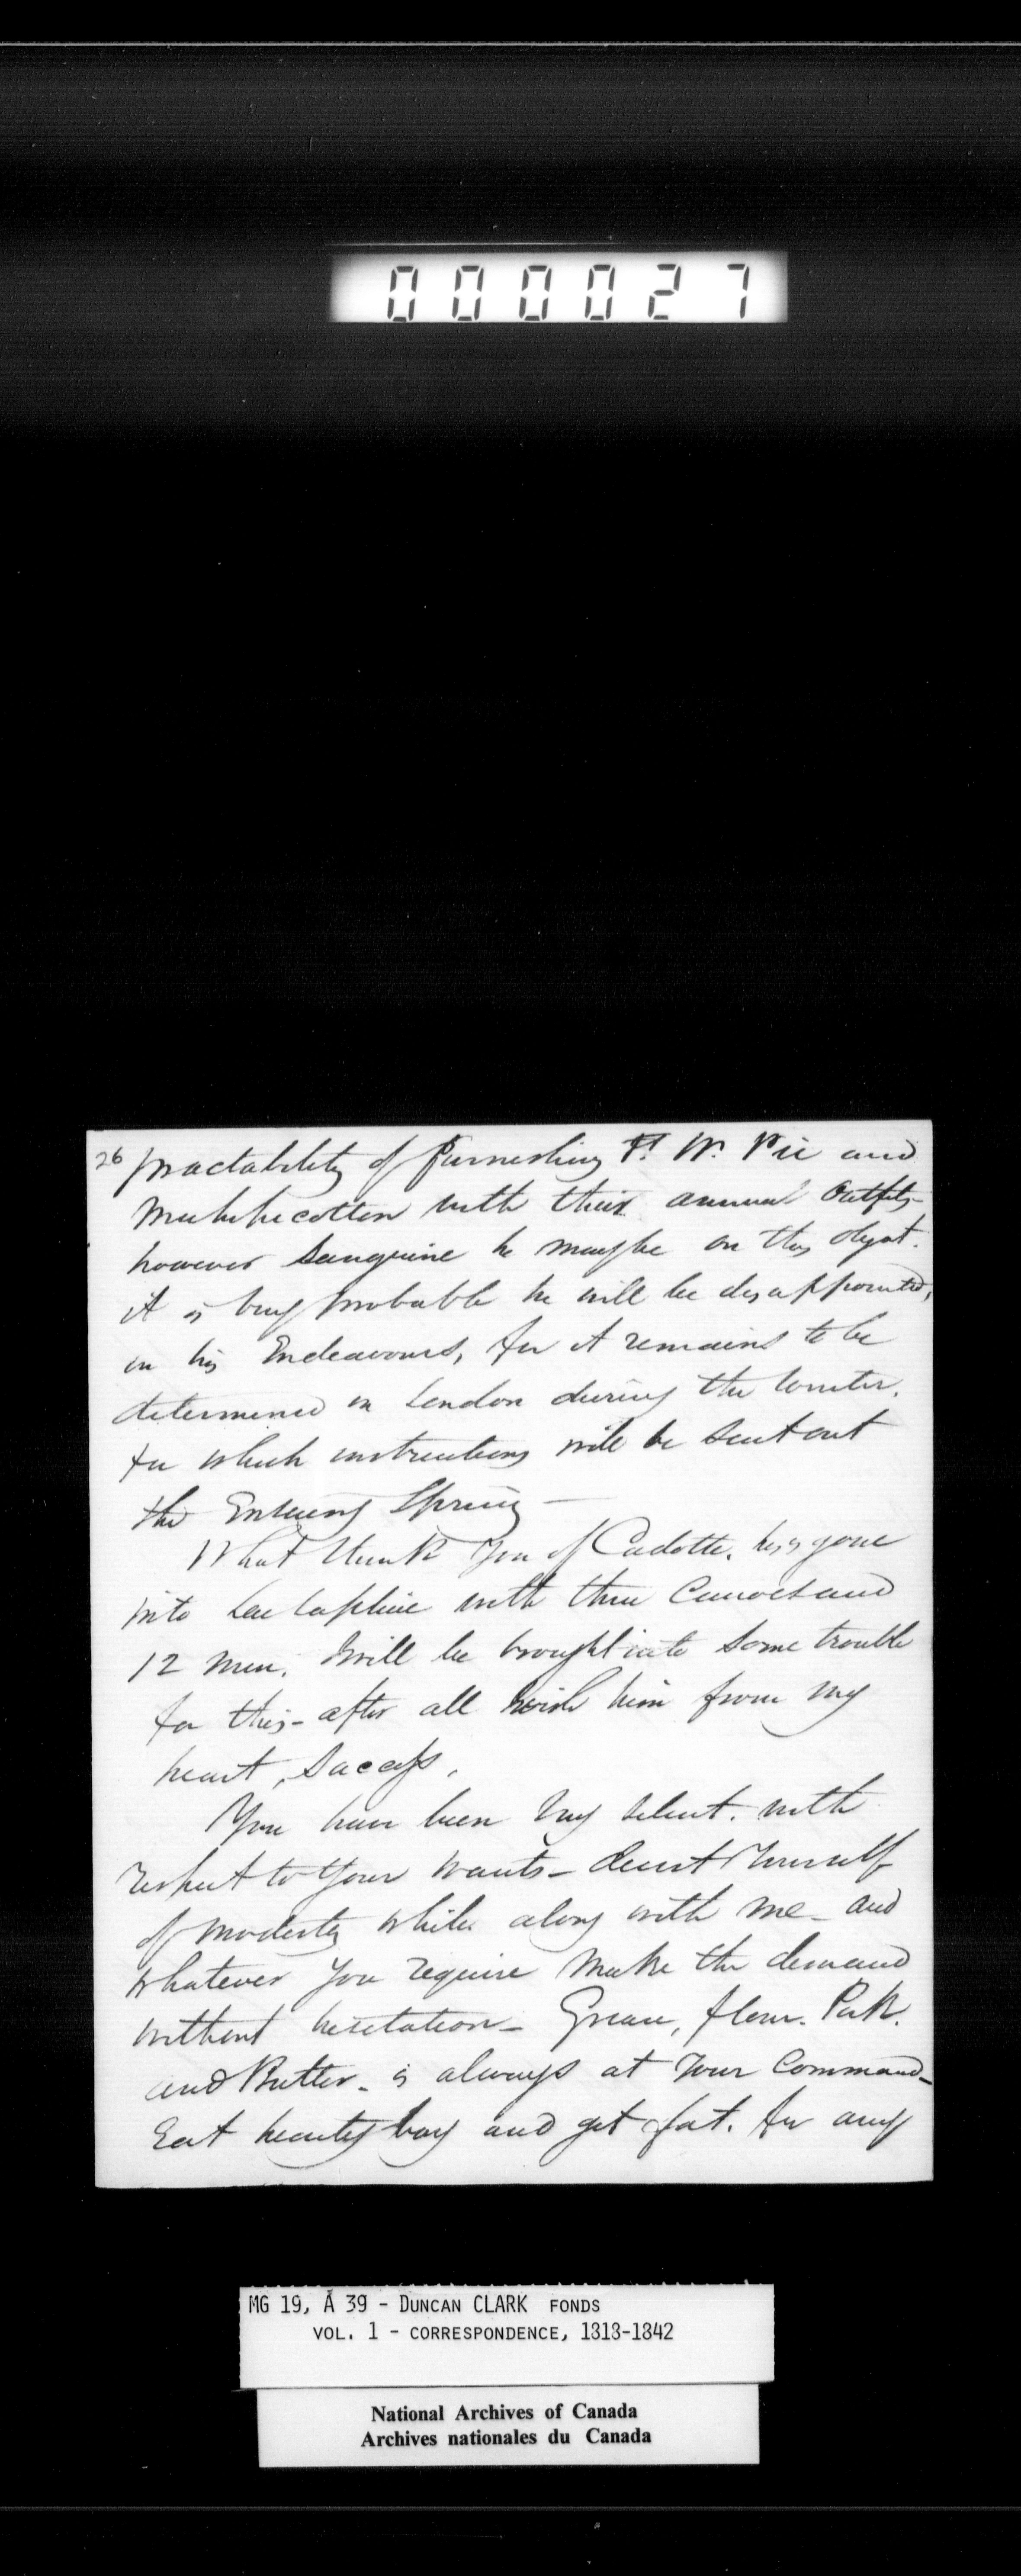 000027
26 practability of furnishing Ft. W. Pic and
Michipicotten with their annual Outfits-
however Sanguine he maybe on this object.
it is very probable he will be disappointed,
in his Endeavours, for it remains to be
determined in London during the winter.
for which instructions will be Sent out
the Ensuing Spring —
What think you of Cadotte. he is gone
into with three Canoes and
12 men. will be brought into Some trouble
for this- after all wish him from my
heart, Success.
You have been very silent. with
respect to Your wants - divest Yourself
of modesty while along with me - and
whatever you require make the demand
without hesitation - Grease, flour. Pork.
and Butter - is always at Your Command -
Eat hearty boy and get fat. for any
MG 19, A 39 - DUNCAN CLARK FONDS
VOL. 1 - CORRESPONDENCE, 1813-1842
National Archives of Canada
Archives nationales du Canada